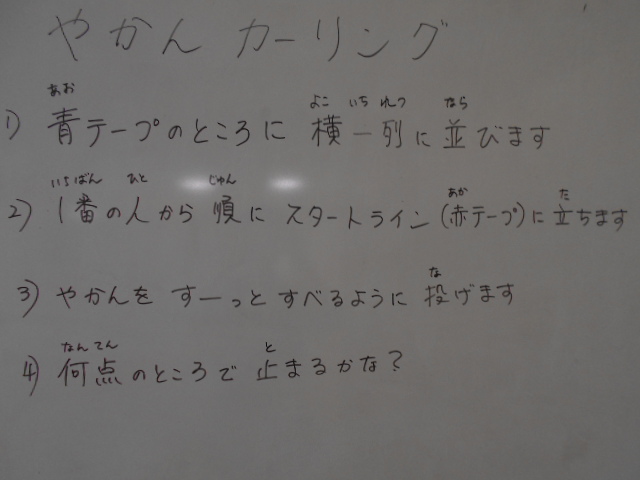 やかん カーリング
あお よこ いち れつ なら
1) 青テープのところに 横一列に 並びます
いちばん ひと じゅん あか た
2) 1番の人から 順に スタートライン(赤テープ)に立ちます
な
3) やかんを すーっと すべるように 投げます
なんてん と
4) 何点のところで 止まるかな?